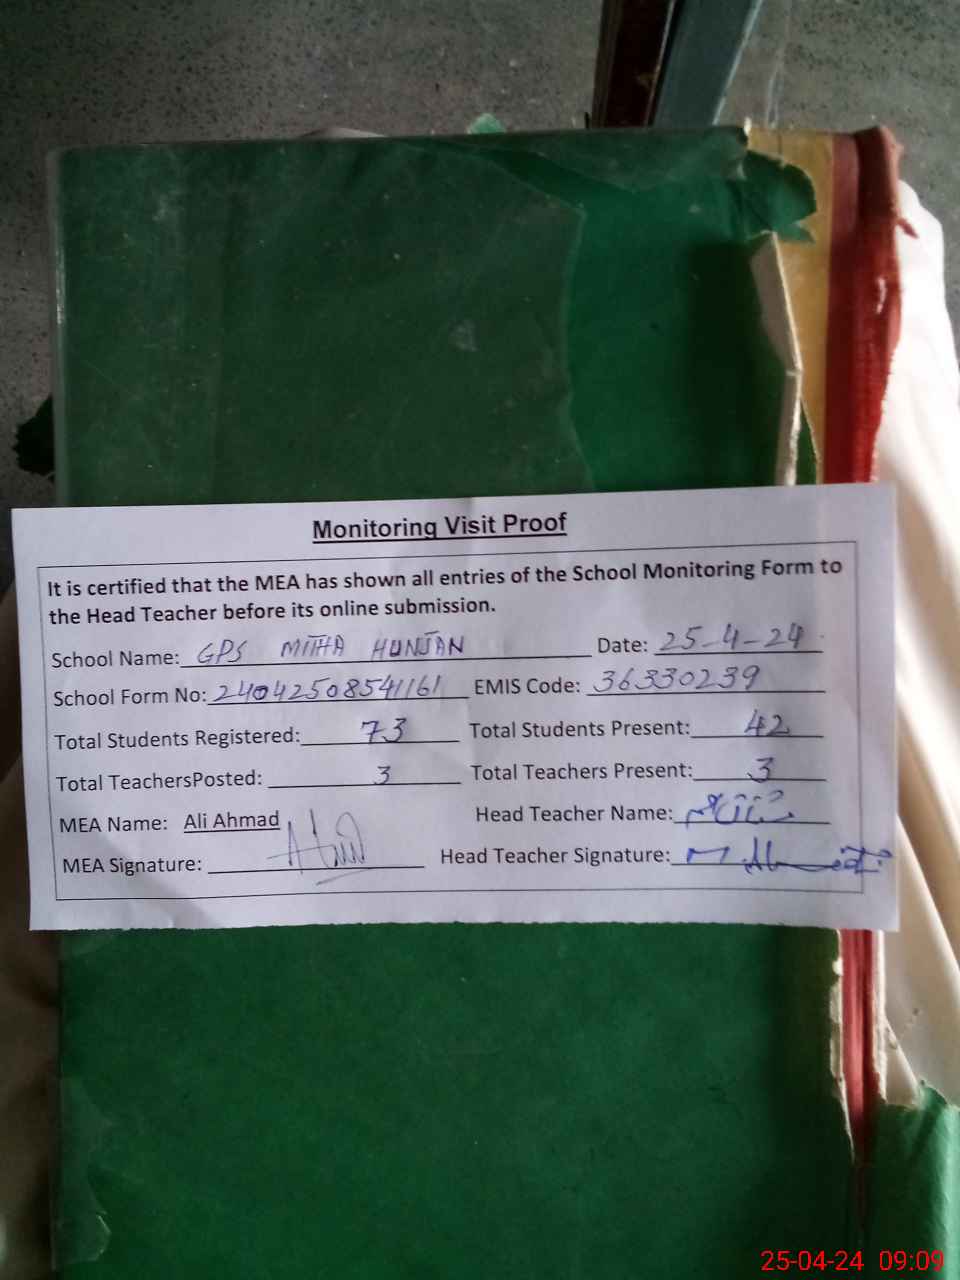 Monitoring Visit Proof
It is certified that the MEA has shown all entries of the School Monitoring Form to
the Head Teacher before its online submission.
School Name: GPS MITHA HUNJAN Date: 25-4-24
School Form No: 24042508541161 EMIS Code: 36330239
Total Students Registered: 73 Total Students Present: 42
Total TeachersPosted: 3 Total Teachers Present: 3
MEA Name: Ali Ahmad Head Teacher Name:
MEA Signature: Head Teacher Signature:
25-04-24 09:09